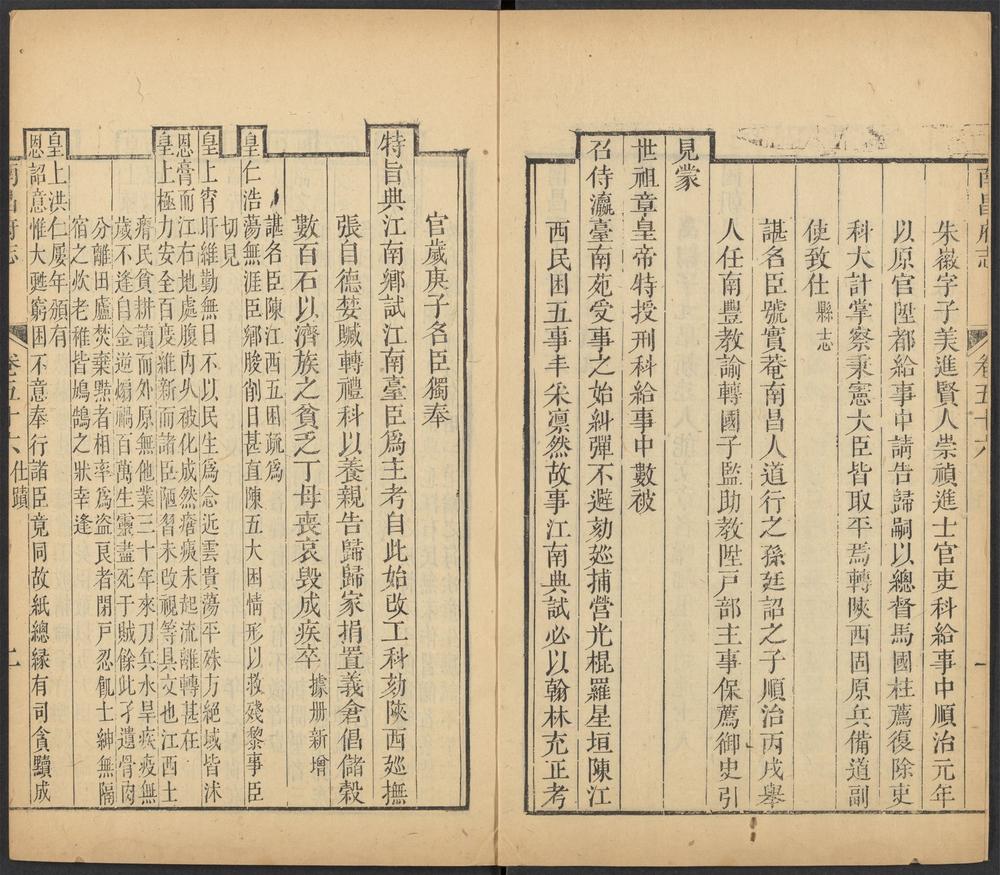 南昌府志 卷五十六 一
朱薇字子美進賢人崇禎進士官吏科給事中順治元年
以原官陞都給事中請告歸嗣以總督馬國柱薦復除吏
科大計掌察秉憲大臣皆取平焉轉陜西固原兵備道副
使致仕縣志
諶名臣號實菴南昌人道行之孫廷詔之子順治丙戌舉
人任南豐教諭轉國子監助教陞戸部主事保薦御史引
見蒙
世祖章皇帝特授刑科給事中數被
召侍瀛臺南苑受事之始糾彈不避劾廵捕營光棍羅星垣陳江
西民困五事丰采凛然故事江南典試必以翰林充正考
官歲庚子名臣獨奉
特旨典江南鄉試江南臺臣爲主考自此始改工科劾陜西廵撫
張自德婪贓轉禮科以養親告歸歸家捐置義倉倡儲穀
數百石以濟族之貧乏丁母喪哀毀成疾卒據册新增
諶名臣陳江西五困疏爲
皇仁浩蕩無涯臣鄉朘削日甚直陳五大困情形以救殘黎事臣
切見
皇上宵旰維勤無日不以民生爲念近雲貴蕩平殊方絕域皆沐
恩膏而江右地處腹内久被化成然瘡痍未起流離轉甚在
皇上極力安全百度維新而諸臣陋習未改視等具文也江西土
瘠民貧耕讀而外原無他業三十年來刀兵水旱疾疫無
歲不逢自金逆煽禍百萬生靈盡死于賊餘此孑遺骨肉
分離田廬焚棄黠者相率爲盗良者閉戸忍飢士紳無隔
宿之炊老稚皆鳩鵠之狀幸逢
皇上洪仁屢年頒有
恩詔意惟大甦窮困不意奉行諸臣竟同故紙總縁有司貪黷成
南昌府志 卷五十六 仕蹟 二